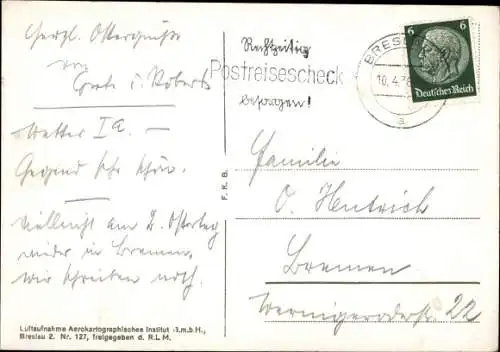 Herzl. Ostergrüße
von
Grete u. Robert
Wetter Ia. —
Gegend sehr schön.
Vielleicht am 2. Ostertag
wieder in Bremen,
wir schreiben noch.
Luftaufnahme Aerokartographisches Institut i.m.b.H.,
Breslau 2. Nr. 127, freigegeben d. R.L.M.
F. K. B.
Rechtzeitig
Postreisescheck
besorgen!
BRES
10.4.
a
6 6
Deutsches Reich
Familie
O. Hentrich
Bremen
Wernigeroderstr. 22